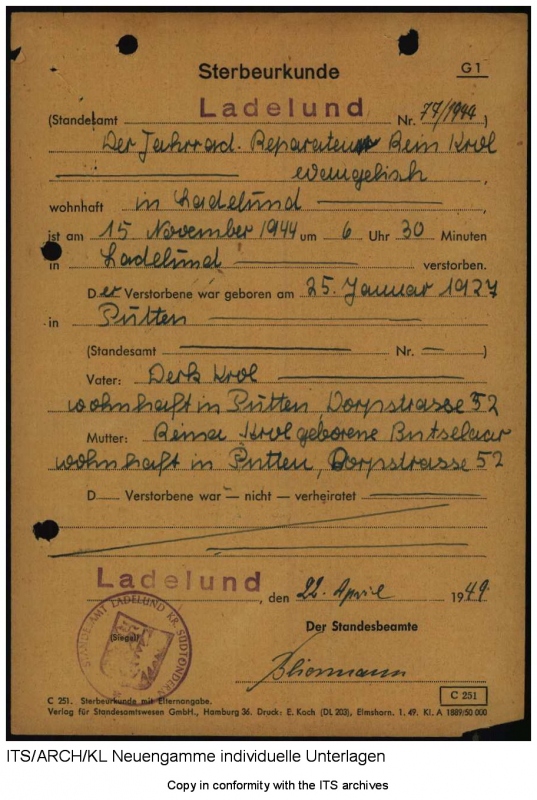 Sterbeurkunde
G 1
(Standesamt Ladelund Nr. 77/1944)
Der Fahrrad Reparateur Rein Krol
evangelisch
wohnhaft in Ladelund
ist am 15 November 1944 um 6 Uhr 30 Minuten
in Ladelund verstorben.
Der Verstorbene war geboren am 25. Januar 1927
in Pütten
(Standesamt — Nr. — )
Vater: Derk Krol
wohnhaft in Pütten Dorpstrasse 52
Mutter: Reina Krol geborene Butselaar
wohnhaft in Putten, Dorpstrasse 52
D Verstorbene war — nicht — verheiratet
Ladelund, den 22. April 1949
STANDESAMT LADELUND KR. SÜDTONDERN
(Siegel)
Der Standesbeamte
C 251
C 251. Sterbeurkunde mit Elternangabe.
Verlag für Standesamtswesen GmbH., Hamburg 36. Druck: E. Koch (DL 203), Elmshorn. 1. 49. Kl. A 1889/50 000
ITS/ARCH/KL Neuengamme individuelle Unterlagen
Copy in conformity with the ITS archives